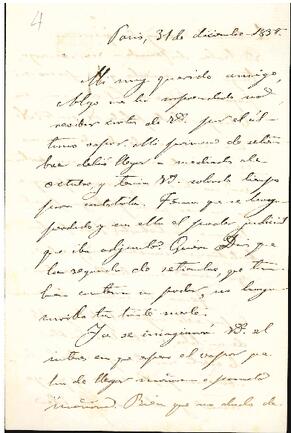 4
Paris, 31 de diciembre 188
Mi muy querido amigo,
Algo me ha sorprendido no
recibir carta de Vd. por el úl-
timo vapor. Mi primera de setiem-
bre debió llegar a mediados de
octubre, y tenía Vd. sobrado tiempo
para contestarla. Temo que se haya
perdido y con ella el poder judicial
que iba adjunto. Quiera Dios que
la segunda de setiembre, que tam-
bién contenía un poder, no haya
corrido tan mala
Ya se imaginará Vd. el
en que espero el vapor que
ha de llegar mañana o pasado
mañana. Bien que no dudo de